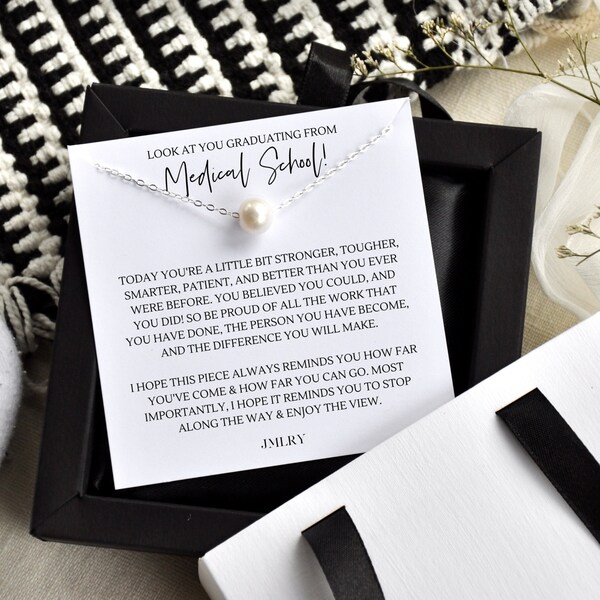 LOOK AT YOU GRADUATING FROM
Medical School!
TODAY YOU'RE A LITTLE BIT STRONGER, TOUGHER,
SMARTER, PATIENT, AND BETTER THAN YOU EVER
WERE BEFORE. YOU BELIEVED YOU COULD, AND
YOU DID! SO BE PROUD OF ALL THE WORK THAT
YOU HAVE DONE, THE PERSON YOU HAVE BECOME,
AND THE DIFFERENCE YOU WILL MAKE.
I HOPE THIS PIECE ALWAYS REMINDS YOU HOW FAR
YOU'VE COME & HOW FAR YOU CAN GO. MOST
IMPORTANTLY, I HOPE IT REMINDS YOU TO STOP
ALONG THE WAY & ENJOY THE VIEW.
JMLRY